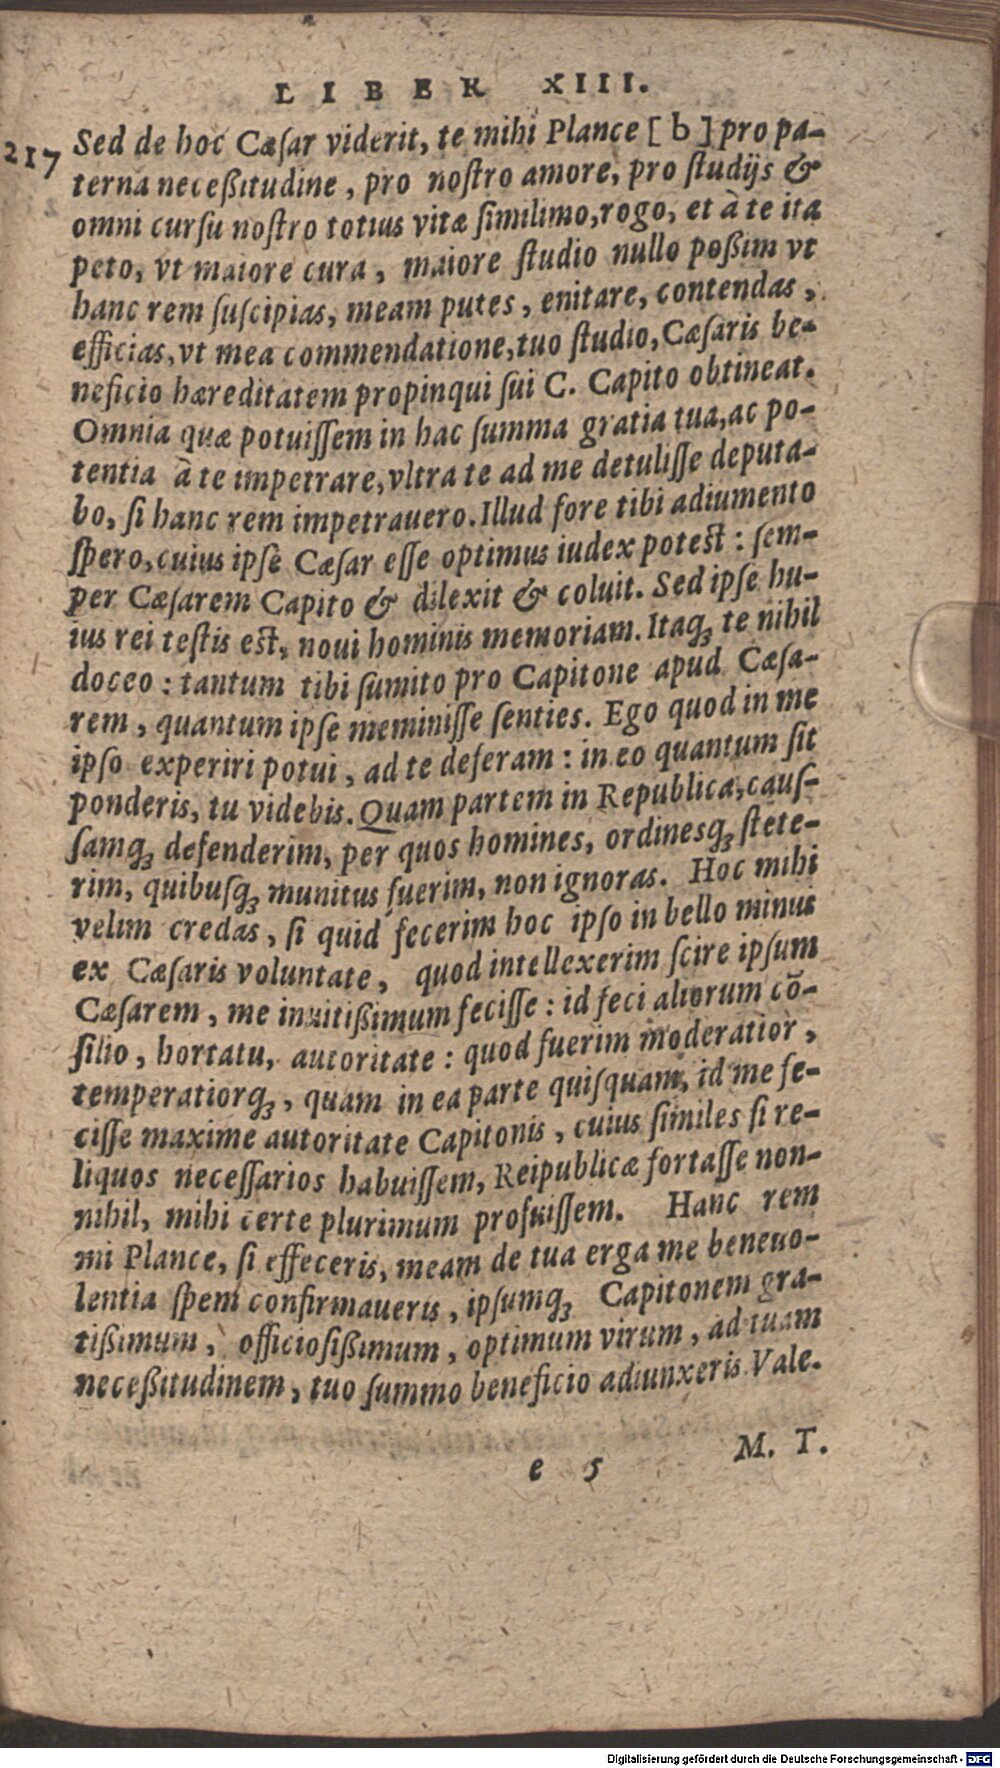 LIBER XIII.
217
Sed de hoc Cæſar viderit, te mihi Plance [b] pro pa-
terna neceßitudine, pro noſtro amore, pro ſtudijs &
omni curſu noſtro totius vitæ ſimilimo, rogo, et à te ita
peto, vt maiore cura, maiore ſtudio nullo poßim vt
hanc rem ſuſcipias, meam putes, enitare, contendas,
efficias, vt mea commendatione, tuo ſtudio, Cæſaris be-
neficio hæreditatem propinqui ſui C. Capito obtineat.
Omnia quæ potuiſſem in hac ſumma gratia tua, ac po-
tentia à te impetrare, vltra te ad me detuliſſe deputa-
bo, ſi hanc rem impetrauero. Illud fore tibi adiumento
ſpero, cuius ipſe Cæſar eſſe optimus iudex poteſt: ſem-
per Cæſarem Capito & dilexit & coluit. Sed ipſe hu-
ius rei teſtis eſt, noui hominis memoriam. Itaqꝫ te nihil
doceo: tantum tibi ſumito pro Capitone apud Cæſa-
rem, quantum ipſe meminiſſe ſenties. Ego quod in me
ipſo experiri potui, ad te deferam: in eo quantum ſit
ponderis, tu videbis. Quam partem in Republica, cauſ-
ſamqꝫ defenderim, per quos homines, ordinesqꝫ ſtete-
rim, quibuſqꝫ munitus fuerim, non ignoras. Hoc mihi
velim credas, ſi quid fecerim hoc ipſo in bello minus
ex Cæſaris voluntate, quod intellexerim ſcire ipſum
Cæſarem, me inuitißimum feciſſe: id feci aliorum cõ-
ſilio, hortatu, autoritate: quod fuerim moderatior,
temperatiorqꝫ, quam in ea parte quiſquam, id me fe-
ciſſe maxime autoritate Capitonis, cuius ſimiles ſi re-
liquos neceſſarios habuiſſem, Reipublicæ fortaſſe non-
nihil, mihi certe plurimum profuiſſem. Hanc rem
mi Plance, ſi effeceris, meam de tua erga me beneuo-
lentia ſpem confirmaueris, ipſumqꝫ Capitonem gra-
tißimum, officioſißimum, optimum virum, ad tuam
neceßitudinem, tuo ſummo beneficio adiunxeris. Vale.
e 5 M. T.
Digitalisierung gefördert durch die Deutsche Forschungsgemeinschaft - DFG